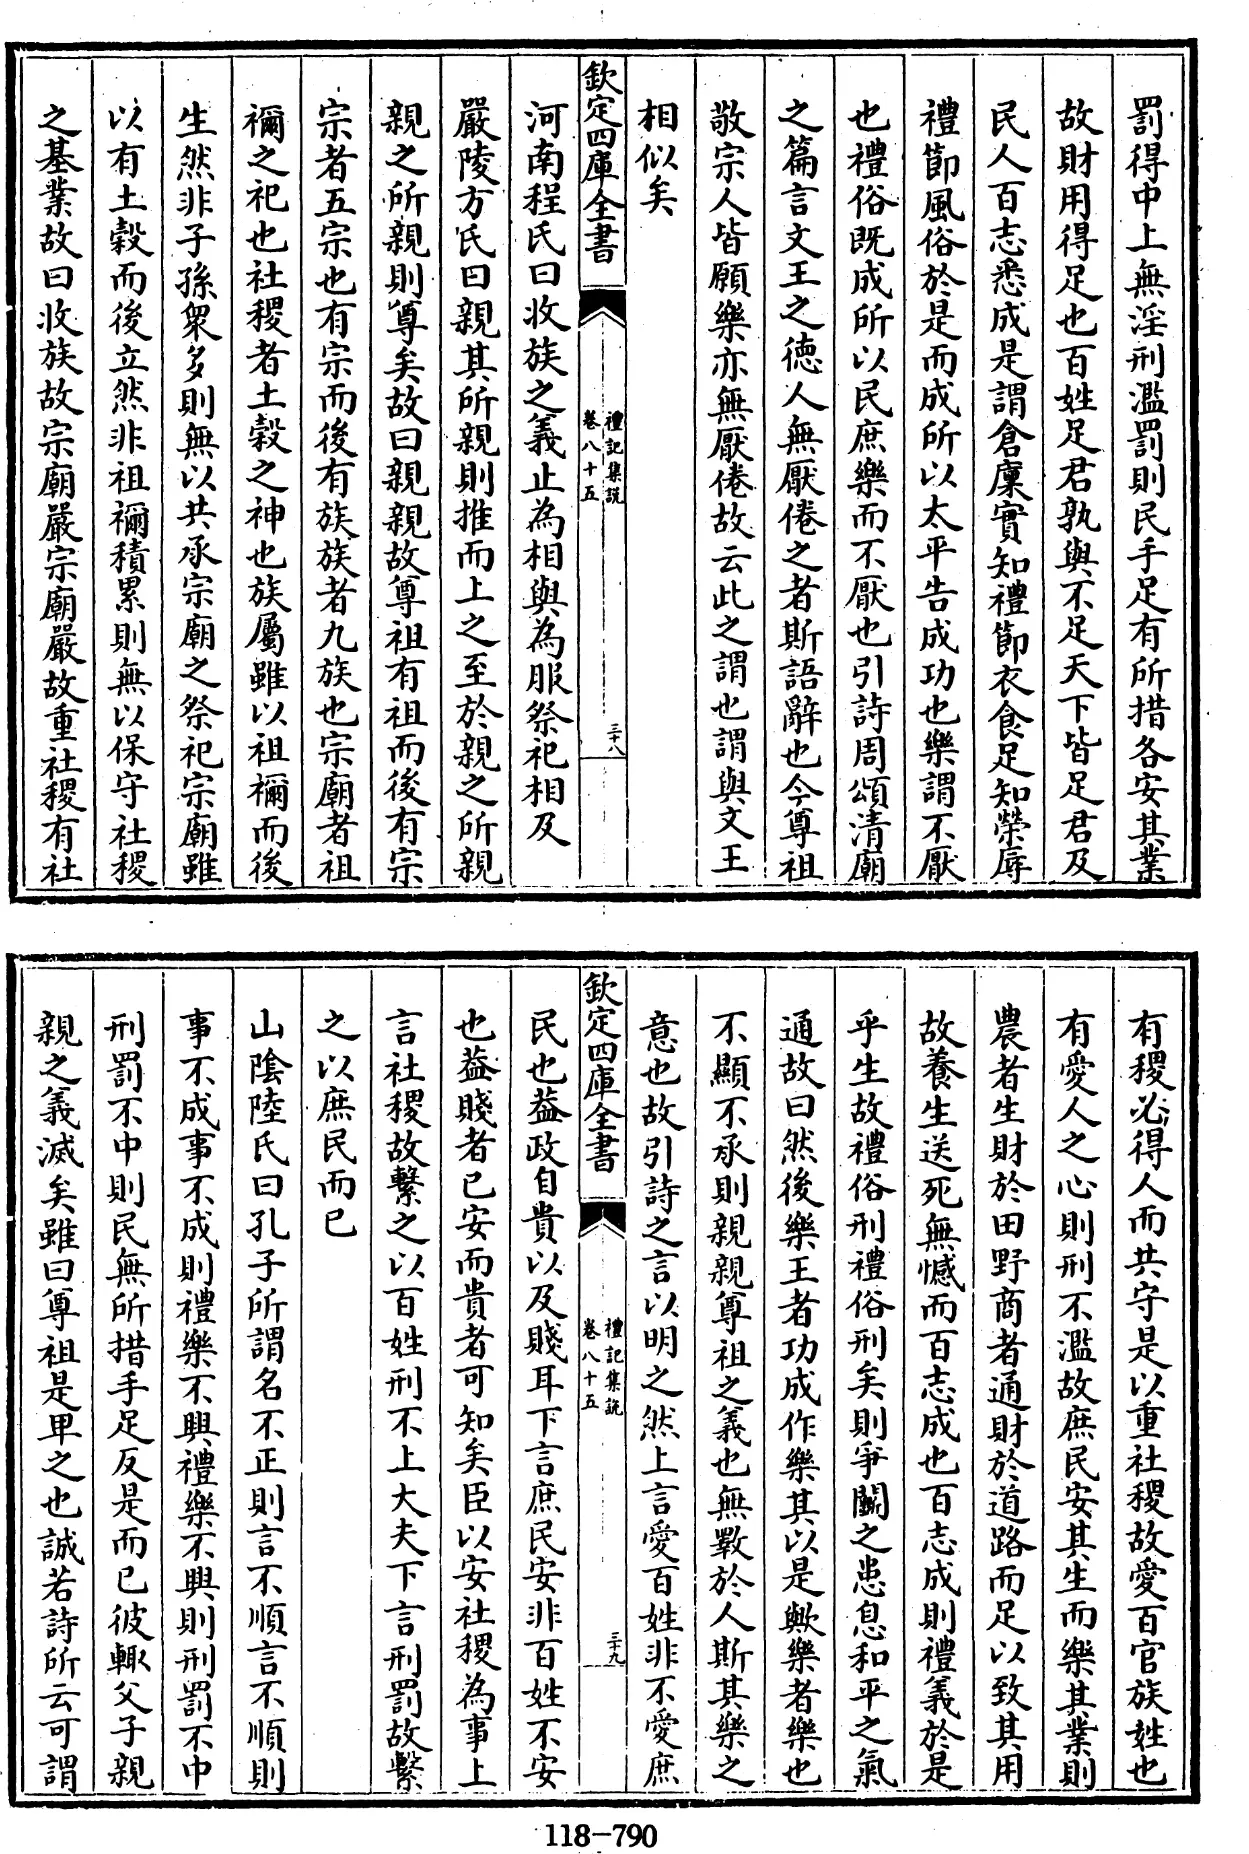 罰得中上無淫刑濫罰則民手足有所措各安其業
故財用得足也百姓足君孰與不足天下皆足君及
民人百志悉成是謂倉廩實知禮節衣食足知榮辱
禮節風俗於是而成所以太平告成功也樂謂不厭
也禮俗既成所以民庶樂而不厭也引詩周頌清廟
之篇言文王之德人無厭倦之者斯語辭也今尊祖
敬宗人皆願樂亦無厭倦故云此之謂也謂與文王
相似矣
欽定四庫全書
禮記集說
卷八十五
三十八
河南程氏曰收族之義止為相與為服祭祀相及
嚴陵方氏曰親其所親則推而上之至於親之所親
親之所親則尊矣故曰親親故尊祖有祖而後有宗
宗者五宗也有宗而後有族族者九族也宗廟者祖
禰之祀也社稷者土穀之神也族屬雖以祖禰而後
生然非子孫衆多則無以共承宗廟之祭祀宗廟雖
以有土穀而後立然非祖禰積累則無以保守社稷
之基業故曰收族故宗廟嚴宗廟嚴故重社稷有社
有稷必得人而共守是以重社稷故愛百官族姓也
有愛人之心則刑不濫故庶民安其生而樂其業則
農者生財於田野商者通財於道路而足以致其用
故養生送死無憾而百志成也百志成則禮義於是
乎生故禮俗刑禮俗刑矣則爭鬭之患息和平之氣
通故曰然後樂王者功成作樂其以是歟樂者樂也
不顯不承則親親尊祖之義也無斁於人斯其樂之
意也故引詩之言以明之然上言愛百姓非不愛庶
欽定四庫全書
禮記集說
卷八十五
三十九
民也蓋政自貴以及賤耳下言庶民安非百姓不安
也蓋賤者已安而貴者可知矣臣以安社稷為事上
言社稷故繫之以百姓刑不上大夫下言刑罰故繫
之以庶民而已
山陰陸氏曰孔子所謂名不正則言不順言不順則
事不成事不成則禮樂不興禮樂不興則刑罰不中
刑罰不中則民無所措手足反是而已彼輒父子親
親之義滅矣雖曰尊祖是卑之也誠若詩所云可謂
118-790